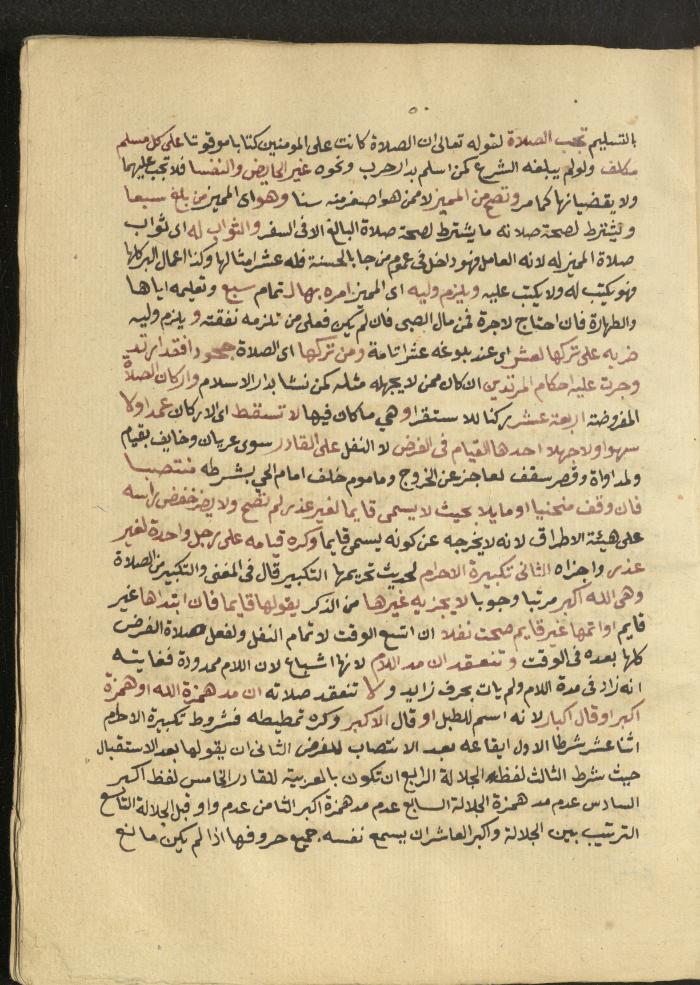 بالتسليم تجب الصلاة لقوله تعالى ان الصلاة كانت على المومنين كتابا موقوتا على كل مسلم
مكلف ولو لم يبلغه الشرع كمن اسلم بدار حرب ونحوه غير الحايض والنفسا فلا تجب عليهما
ولا يقضيانها كما مر وتصح من المميز لا ممن هو اصغر منه سنا وهو اي المميز من بلغ سبعا
ويشترط لصحة صلاته ما يشترط لصحة صلاة البالغ الا في السفر والثواب له اي ثواب
صلاة المميز له لانه العامل فهو داخل في عموم من جا بالحسنة فله عشر امثالها وكذا اعمال البر كلها
فهو يكتب له ولا يكتب عليه ويلزم وليه اي المميز امره بها لتمام سبع وتعليمه اياها
والطهارة فان احتاج لاجرة فمن مال الصبي فان لم يكن فعلى من تلزمه نفقته ويلزم وليه
ضربه على تركها لعشر اي عند بلوغه عشرا تامة ومن تركها اي الصلاة جحودا فقد ارتد
وجرت عليه احكام المرتدين ان كان ممن لا يجهله مثله كمن نشا بدار الاسلام واركان الصلاة
المفروضة اربعة عشر ركنا للاستقرا وهي ما كان فيها لا تسقط اي الاركان عمدا ولا
سهوا ولا جهلا احدها القيام في الفرض لا النفل على القادر سوى عريان وخايف بقيام
ولمداواة وقصر سقف لعاجز عن الخروج وماموم خلف امام الحي بشرطه منتصبا
فان وقف منحنيا او مايلا بحيث لا يسمى قايما لغير عذر لم تصح ولا يضر خفض راسه
على هيئة الاطراق لانه لا يخرجه عن كونه يسمى قايما وكره قيامه على رجل واحدة لغير
عذر واجزاه الثاني تكبيرة الاحرام لحديث تحريمها التكبير قال في المغني والتكبير من الصلاة
وهي الله اكبر مرتبا وجوبا لا يجزيه غيرها من الذكر يقولها قايما فان ابتداها غير
قايم او اتمها غير قايم صحت نفلا ان اتسع الوقت لاتمام النفل ولفعل صلاة الفرض
كلها بعده في الوقت وتنعقد ان مد اللام لانها اشباع لان اللام ممدودة فغايته
انه زاد في مدة اللام ولم يات بحرف زايد ولا تنعقد صلاته ان مد همزة الله او همزة
اكبر او قال اكبار لانه اسم للطبل او قال الاكبر وكره تمطيطه فشروط تكبيرة الاحرام
اثنا عشر شرطا الاول ايقاعه بعد الانتصاب للفرض الثاني ان يقولها بعد الاستقبال
حيث شرط الثالث لفظ الجلالة الرابع ان تكون بالعربية للقادر الخامس لفظ اكبر
السادس عدم مد همزة الجلالة السابع عدم مد همزة اكبر الثامن عدم واو قبل الجلالة التاسع
الترتيب بين الجلالة واكبر العاشر ان يسمع نفسه جميع حروفها اذا لم يكن مانع